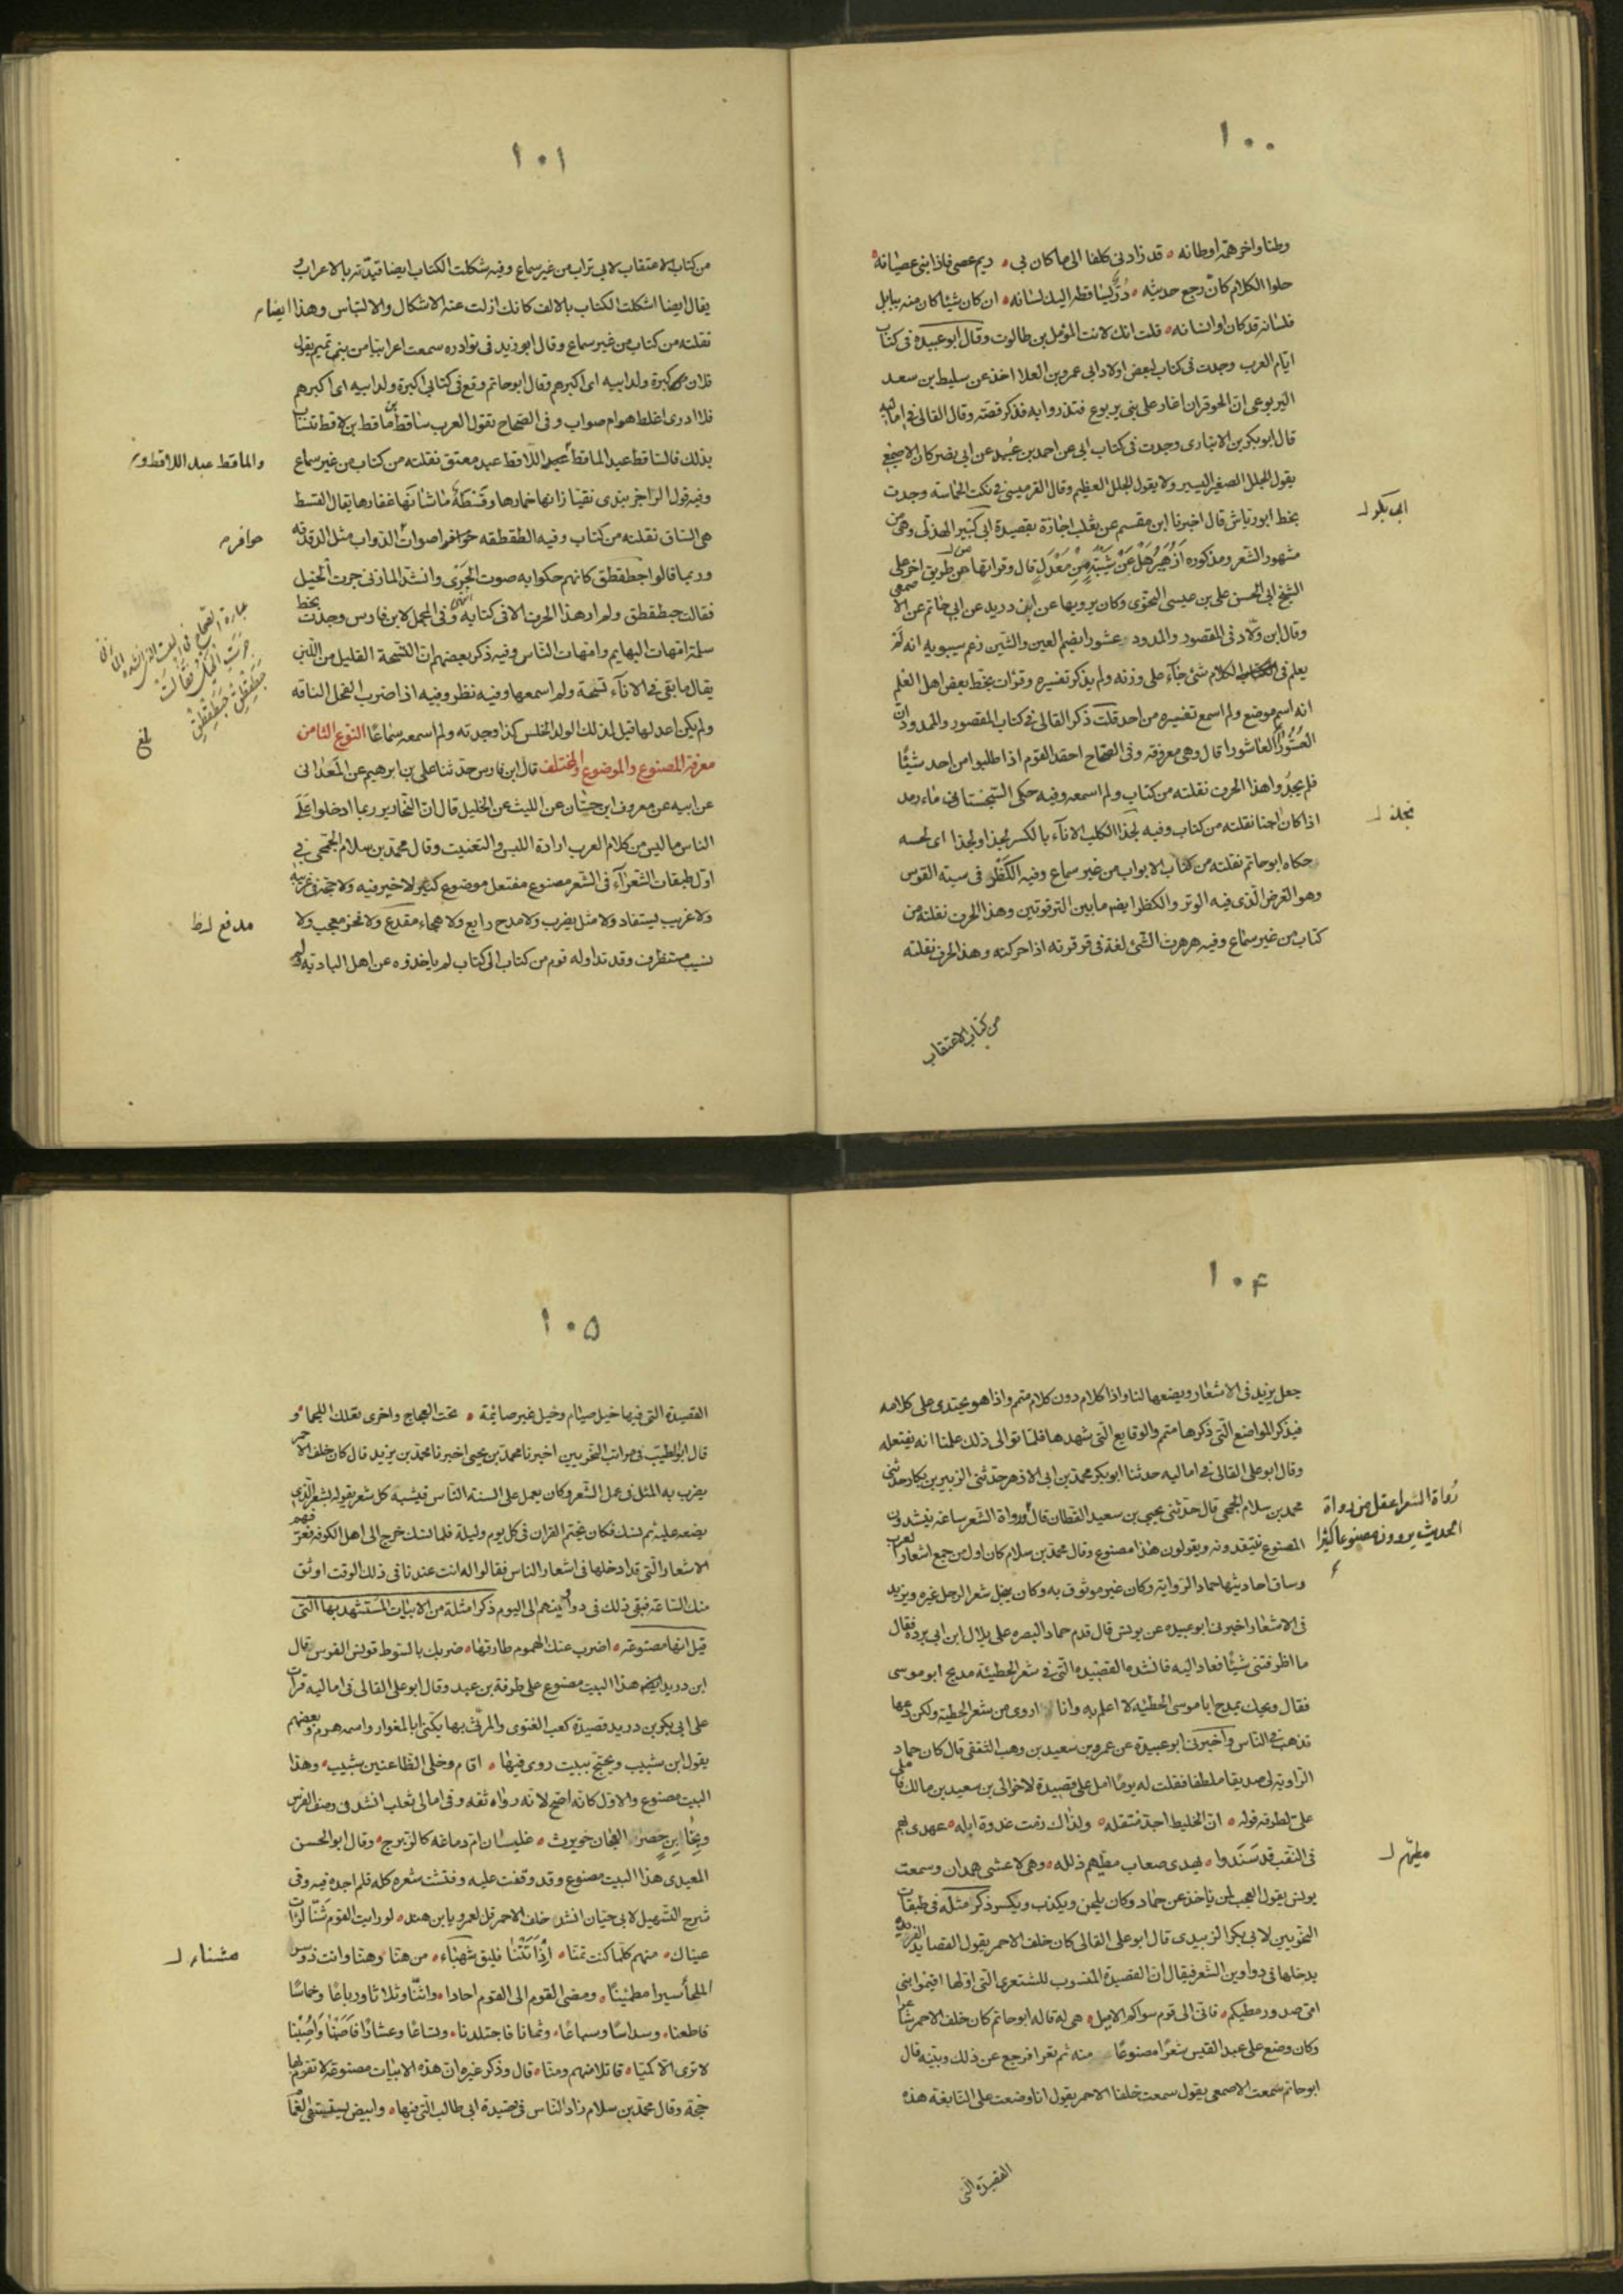 ١٠٠
وطنا واخر همه اوطانه قد زادنى كلفا الى ما كان بى ريم عصى فاذابنى عصيانه
حلوا الكلام كان رجع حديثه در يساقطه اليك لسانه ان كان شيئا كان منه ببابل
فلسانه قد كان او انسانه قلت انك لانت المؤمل بن طالوت وقال ابو عبيدة فى كتاب
ايام العرب وجدت فى كتاب لبعض اولاد ابى عمرو بن العلا اخذ عن سليط بن سعد
اليربوعى ان الحوفزان اغار على بنى يربوع فنذروا به فذكر قصته وقال القالى فى اماليه
قال ابو بكر بن الانبارى وجدت فى كتاب ابى عن احمد بن عبيد عن ابى نصر كان الاصمعى
يقول الجلل الصغير اليسير ولا يقول الجلل العظيم وقال القرميسى فى نكت الحماسة وجدت
بخط ابو رياش قال اخبرنا ابن مقسم عن ثعلب اجازة بقصيدة ابى كبير الهذلى وهى من
ابى بكر
مشهور الشعر ومذكوره ازهير هل عن شيبة من معدل قال وقراتها من طريق اخر على
الشيخ ابى الحسن على بن عيسى النحوى وكان يرويها عن ابن دريد عن ابى حاتم عن الاصمعى
وقال ابن ولاد فى المقصور والممدود عشورا بضم العين والشين زعم سيبويه انه لم
يعلم فى الكلام شئ جآء على وزنه ولم يذكر تفسيره وقرات بخط بعض اهل العلم
انه اسم موضع ولم اسمع تفسيره من احد قلت ذكر القالى فى كتاب المقصور والممدود ان
العشورا العاشورا قال وهى معروفة وفى الصحاح احقد القوم اذا طلبوا من احد شيئا
فلم يجدوا هذا الحرف نقلته من كتاب ولم اسمعه وفيه حكى السجستانى مآء رمد
اذا كان اجنا نقلته من كتاب وفيه لجذ الكلب الانآء بالكسر لجذا ولجذا اى لحسه
حكاه ابو حاتم نقلته من كتاب الابواب من غير سماع وفيه الكظر فى سية القوس
وهو الفرض الذى فيه الوتر والكظر ايضم ما بين الترقوتين وهذا الحرف نقلته من
كتاب من غير سماع وفيه هرهرت الشئ لغة فى قرقرته اذا حركته وهذا الحرف نقلته
من كتاب الاعتقاب
١٠١
من كتاب الاعتقاب لابى تراب من غير سماع وفيه شكلت الكتاب ايضا قيدته بالاعراب
يقال ايضا اشكلت الكتاب بالالف كانك ازلت عنه الاشكال والالتباس وهذا ايضا
نقلته من كتاب من غير سماع وقال ابو زيد فى نوادره سمعت اعرابيا من بنى تميم يقول
فلان كبرة ولد ابيه اى اكبرهم وقال ابو حاتم وقع فى كتابى اكبرة ولد ابيه اى اكبرهم
فلا ادرى اغلط هو ام صواب وفى الصحاح تقول العرب ساقط بن ماقط بن لاقط تتساب
بذلك فالساقط عبد الماقط عبد اللاقط عبد معتق نقلته من كتاب من غير سماع
والماقط عبد اللاقط
وفيه قول الراجز تبدى نقيا زانها خمارها وقسطة ما شانها غفارها يقال القسط
هى الساق نقلته من كتاب وفيه الطقطقه حوافر اصوات الدواب مثل الدقدقه
حوافر
وربما قالوا حبطقطق كانهم حكوا به صوت الجرى وانشد المازنى جرت الخيل
فقالت حبطقطق ولم ار هذا الحرف الا فى كتابه وفى المجمل لابن فارس وجدت بخط
سلمة امهات البهايم وامهات الناس وفيه ذكر بعضهم ان النشحة القليل من اللبن
يقال ما بقى فى الانآء نشحة ولم اسمعها وفيه نظر وفيه اذا ضرب الفحل الناقه
ولم يكن اعد لها قيل لذلك الولد الخلس كذا وجدته ولم اسمعه سماعا النوع الثامن
معرفة المصنوع والموضوع والمختلف قال ابن فارس حدثنا على بن ابرهيم عن المعدانى
عن ابيه عن معروف ابن حسان عن الليث عن الخليل قال ان النحارير ربما ادخلوا على
الناس ما ليس من كلام العرب ارادة اللبس والتعنيت وقال محمد بن سلام الجمحى فى
اول طبقات الشعرآء فى الشعر مصنوع مفتعل موضوع كثير لا خير فيه ولا حجة فى عربيته
ولا غريب يستفاد ولا مثل يضرب ولا مدح رايع ولا هجاء مقذع ولا فخر معجب ولا
نسيب مستظرف وقد تداوله قوم من كتاب الى كتاب لم ياخذوه عن اهل البادية ولم
١٠۴
جعل يزيد فى الاشعار ويضعها لنا واذا كلام دون كلام متمم واذا هو يحتذى على كلامه
فيذكر المواضع التى ذكرها متمم والوقايع التى شهدها فلما توالى ذلك علمنا انه يفتعله
وقال ابو على القالى فى اماليه حدثنا ابو بكر محمد بن ابى الازهر حدثنى الزبير بن بكار حدثنى
محمد بن سلام الجمحى قال حدثنى يحيى بن سعيد القطان قال ورواة الشعر ساعة ينشدون
رُواة الشعر اعقل من رواة
الحديث يروون مصنوعا كثيرا
المصنوع ينتقدونه ويقولون هذا مصنوع وقال محمد بن سلام كان اول من جمع اشعار العرب
وساق احاديثها حماد الراوية وكان غير موثوق به وكان ينحل شعر الرجل غيره ويزيد
فى الاشعار اخبرنى ابو عبيده عن يونس قال قدم حماد البصره على بلال ابن ابى برده فقال
ما اطرفتنى شيئا فعاد اليه فانشده القصيده التى فى شعر الحطيئة مديح ابو موسى
فقال ويحك يمدح ابا موسى الحطيئه لا اعلم به وانا اروى من شعر الحطيئة ولكن دعها
تذهب فى الناس واخبرنى ابو عبيدة عن عمرو بن سعيد بن وهب الثقفى قال كان حماد
الراوية لى صديقا ملطفا فقلت له يوما امل على قصيدة لاخوالى بن سعيد بن مالك فاملى
على لطرفه قوله ان الخليط اجد منتقله ولذاك زمت غدوة ابله عهدى بهم
فى النقب قد سندوا تهدى صعاب مطيهم ذلله وهى لاعشى همدان وسمعت
مطيهم
يونس يقول العجب لمن ياخذ عن حماد وكان يلحن ويكذب ويكسر ذكر مثله فى طبقات
النحويين لابى بكر الزبيدى قال ابو على القالى كان خلف الاحمر يقول القصايد الغريبة
يدخلها فى دواوين الشعر فيقال ان القصيدة المنسوب للشنفرى التى اولها اقيموا بنى
امى صدور مطيكم فانى الى قوم سواكم لاميل هى له قاله ابو حاتم كان خلف الاحمر شاعرا
وكان وضع على عبد القيس شعرا مصنوعا منه ثم تقرا فرجع عن ذلك وبينه قال
ابو حاتم سمعت الاصمعى يقول سمعت خلفا الاحمر يقول انا وضعت على النابغة هذه
القصيدة التى
١٠۵
القصيدة التى فيها خيل صيام وخيل غير صائمة تحت العجاج واخرى تعلك اللجما
قال ابو الطيب فى مراتب النحويين اخبرنا محمد بن يحيى اخبرنا محمد بن يزيد قال كان خلف الاحمر
يضرب به المثل فى عمل الشعر وكان يعمل على السنة الناس فيشبه كل شعر يقوله بشعر الذى
يضعه عليه ثم نسك فكان يختم القران فى كل يوم وليلة فلما نسك خرج الى اهل الكوفه فعرفهم
الاشعار التى قد ادخلها فى اشعار الناس فقالوا له انت عندنا فى ذلك الوقت اوثق
منك الساعة فبقى ذلك فى دواوينهم الى اليوم ذكر امثلة من الابيات المستشهد بها التى
قيل انها مصنوعه اضرب عنك الهموم طارقها ضربك بالسوط قونس الفرس قال
ابن دريد ايضم هذا البيت مصنوع على طرفة بن عبد وقال ابو على القالى فى اماليه قرات
على ابى بكر بن دريد قصيدة كعب الغنوى والمرثى بها يكنى ابا المغوار واسمه هرم وبعضهم
يقول ابن شبيب ويحتج ببيت روى فيها اقام وخلى الظاعنين شبيب وهذا
البيت مصنوع والاول كانه اصح لانه رواه ثقه وفى امالى ثعلب انشد فى وصف الفرس
غليسان ام دماغه كالزبرج وقال ابو الحسن
المعيدى هذا البيت مصنوع وقد وقفت عليه وفتشت شعره كله فلم اجده فيه وفى
شرح التسهيل لابى حيان انشد خلف الاحمر قل لعمرو يا ابن هند لو رايت القوم شنا لرات
عيناك منهم كلما كنت تمنا اذا اتتنا فيلق شهباء من هنا وهنا وانت دوسر
مشناء
الملحا سيرا مطمئنا ومضى القوم الى القوم احادا واثنا وثلاثا ورباعا وخماسا
فاطعنا وسداسا وسباعا وثمانا فاجتلدنا وتساعا وعشارا فاصبنا واصبنا
لا ترى الا كميا قاتلا منهم ومنا قال وذكر غيره ان هذه الابيات مصنوعة لا تقوم بها
حجة وقال محمد بن سلام زاد الناس فى قصيدة ابى طالب التى فيها وابيض يستسقى الغما